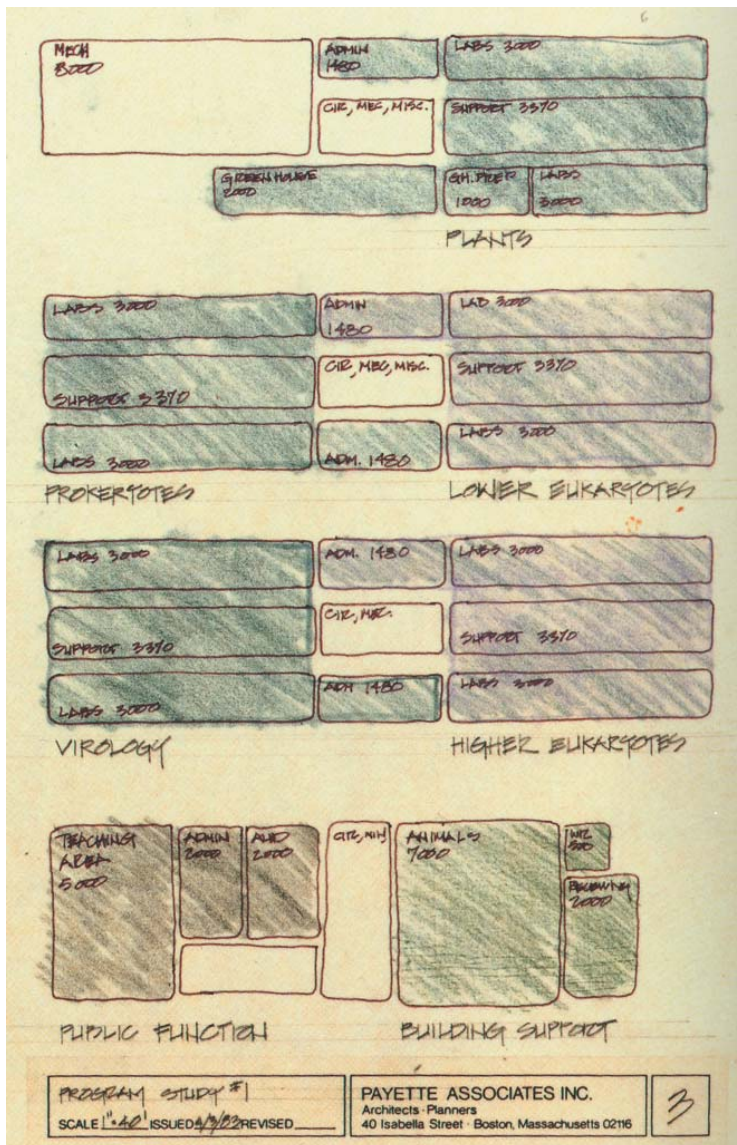 MECH
8000
ADMIN
1480
LABS 3000
CIR, MEC, MISC.
SUPPORT 3370
GREEN HOUSE
2000
GH. PREP
1000
LABS
3000
PLANTS
LABS 3000
ADMIN
1480
LAB 3000
SUPPORT 3370
CIR, MEC, MISC.
SUPPORT 3370
LABS 3000
ADM. 1480
LABS 3000
PROKERYOTES
LOWER EUKARYOTES
LABS 3000
ADM. 1480
LABS 3000
SUPPORT 3370
CIR, MEC.
SUPPORT 3370
LABS 3000
ADM 1480
LABS 3000
VIROLOGY
HIGHER EUKARYOTES
TEACHING
AREA
5000
ADMIN
2000
AUD
2000
ANIMALS
7000
500
RECEIVING
2000
PUBLIC FUNCTION
BUILDING SUPPORT
PROGRAM STUDY #1
SCALE 1"=40' ISSUED 4/3/83 REVISED
PAYETTE ASSOCIATES INC.
Architects · Planners
40 Isabella Street · Boston, Massachusetts 02116
3